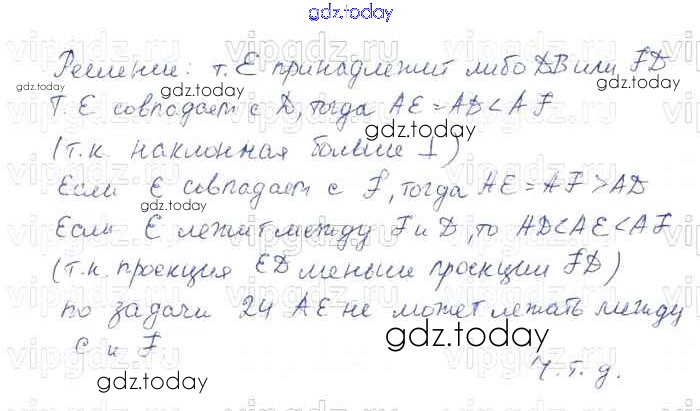 gdz.today
Решение: т. E принадлежит либо DB или FD
gdz.today
Т. E совпадает с D, тогда AE = AD < AF
gdz.today
(т.к. наклонная больше ⊥)
Если E совпадает с F, тогда AE = AF > AD
gdz.today
Если E лежит между F и D, то AD < AE < AF
(т.к. проекция ED меньше проекции FD)
gdz.today
по задачи 24 AE не может лежать между
gdz.today
C и F.
gdz.today
Ч.т.д.